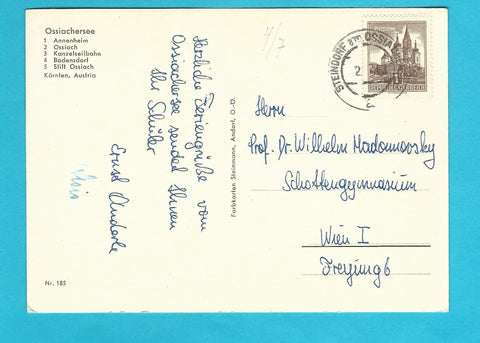 Ossiachersee
1 Annenheim
2 Ossiach
3 Kanzelseilbahn
4 Bodensdorf
5 Stift Ossiach
Kärnten, Austria
Herzliche Feriengrüße vom
Ossiachersee sendet Ihnen
Ihr Schüler
Ernst Anderle
Nr. 185
Farbkarten Steinmann, Andorf, O.-Ö.
4/7
STEINDORF am OSSIA
2.
REPUBLIK ÖSTERREICH
Herrn
Prof. Dr. Wilhelm Madonnovsky
Schottengymnasium
Wien I
Freyung 6